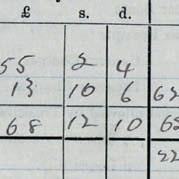 £ s. d.
55 2 4
13 10 6 62
68 12 10 62
22